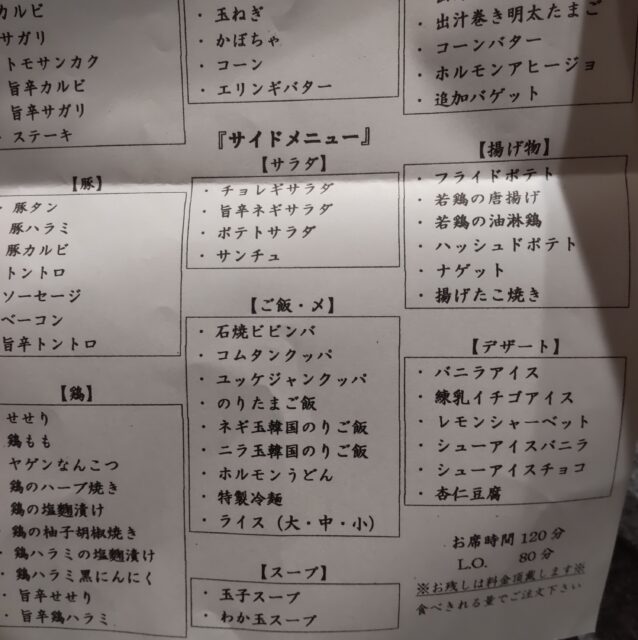 カルビ
サガリ
トモサンカク
旨辛カルビ
旨辛サガリ
・ステーキ
【豚】
・豚タン
豚ハラミ
豚カルビ
トントロ
ソーセージ
ベーコン
旨辛トントロ
【鶏】
せせり
鶏もも
ヤゲンなんこつ
鶏のハーブ焼き
鶏の塩麴漬け
・鶏の柚子胡椒焼き
・鶏ハラミの塩麴漬け
・鶏ハラミ黒にんにく
・旨辛せせり
・旨辛鶏ハラミ
・玉ねぎ
・かぼちゃ
・コーン
・エリンギバター
『サイドメニュー』
【サラダ】
・チョレギサラダ
・旨辛ネギサラダ
・ポテトサラダ
・サンチュ
【ご飯・〆】
・石焼ビビンバ
・コムタンクッパ
・ユッケジャンクッパ
・のりたまご飯
・ネギ玉韓国のりご飯
・ニラ玉韓国のりご飯
・ホルモンうどん
・特製冷麺
・ライス（大・中・小）
【スープ】
・玉子スープ
・わか玉スープ
・出汁巻き明太たまご
・コーンバター
・ホルモンアヒージョ
・追加バゲット
【揚げ物】
・フライドポテト
・若鶏の唐揚げ
・若鶏の油淋鶏
・ハッシュドポテト
・ナゲット
・揚げたこ焼き
【デザート】
・バニラアイス
・練乳イチゴアイス
・レモンシャーベット
・シューアイスバニラ
・シューアイスチョコ
・杏仁豆腐
お席時間 120分
L.O. 80分
※お残しは料金頂戴します※
食べきれる量でご注文下さい